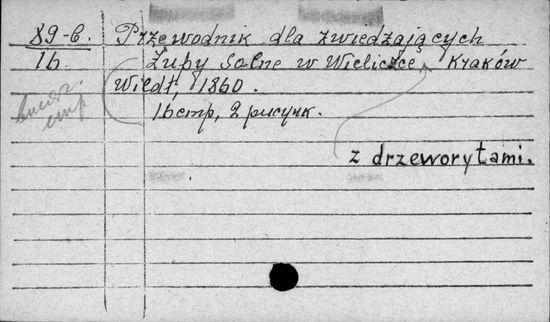 89-б. Przewodnik dla zwiedzających
16. Żupy Solne w Wieliczce, Kraków
Wiedt, 1860.
16 стр, 2 рисунк.
z drzeworytami.